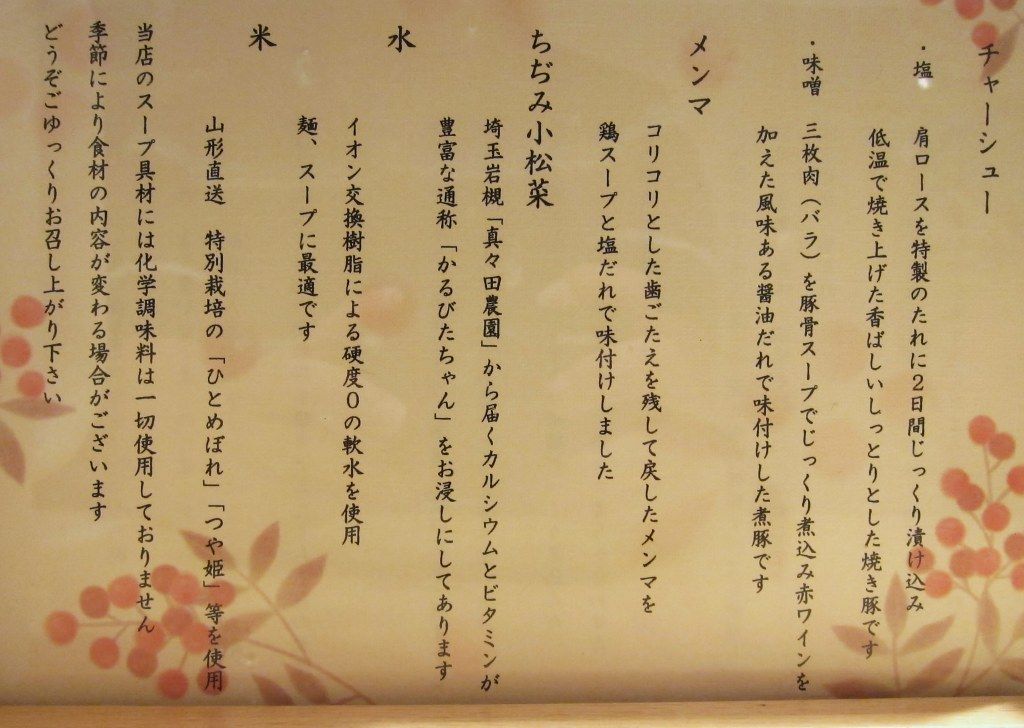 チャーシュー
・塩　肩ロースを特製のたれに2日間じっくり漬け込み
低温で焼き上げた香ばしいしっとりとした焼き豚です
・味噌　三枚肉（バラ）を豚骨スープでじっくり煮込み赤ワインを
加えた風味ある醤油だれで味付けした煮豚です
メンマ
コリコリとした歯ごたえを残して戻したメンマを
鶏スープと塩だれで味付けしました
ちぢみ小松菜
埼玉岩槻「真々田農園」から届くカルシウムとビタミンが
豊富な通称「かるびたちゃん」をお浸しにしてあります
水
イオン交換樹脂による硬度0の軟水を使用
麺、スープに最適です
米
山形直送　特別栽培の「ひとめぼれ」「つや姫」等を使用
当店のスープ具材には化学調味料は一切使用しておりません
季節により食材の内容が変わる場合がございます
どうぞごゆっくりお召し上がり下さい